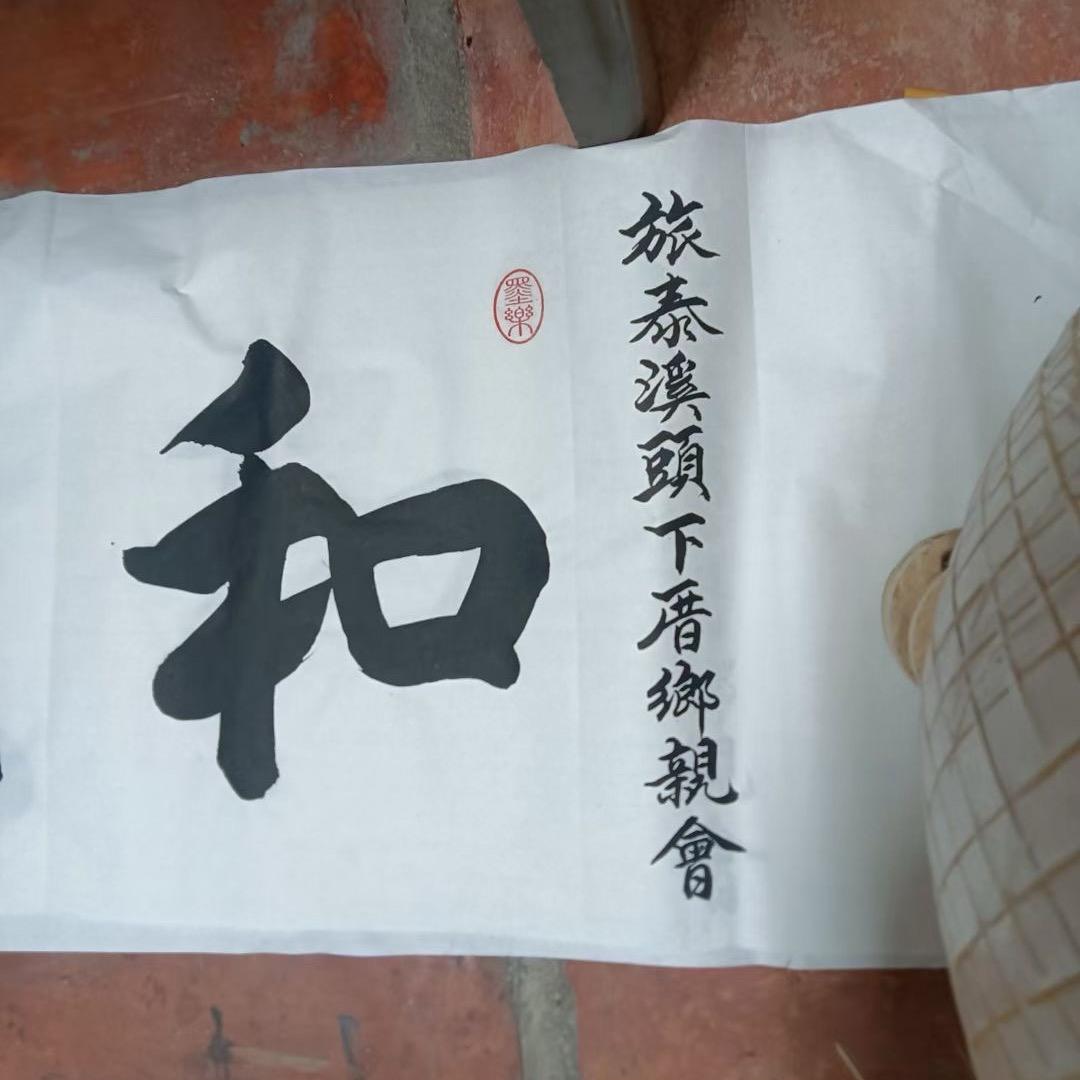 旅泰溪頭下厝鄉親會
墨樂
和